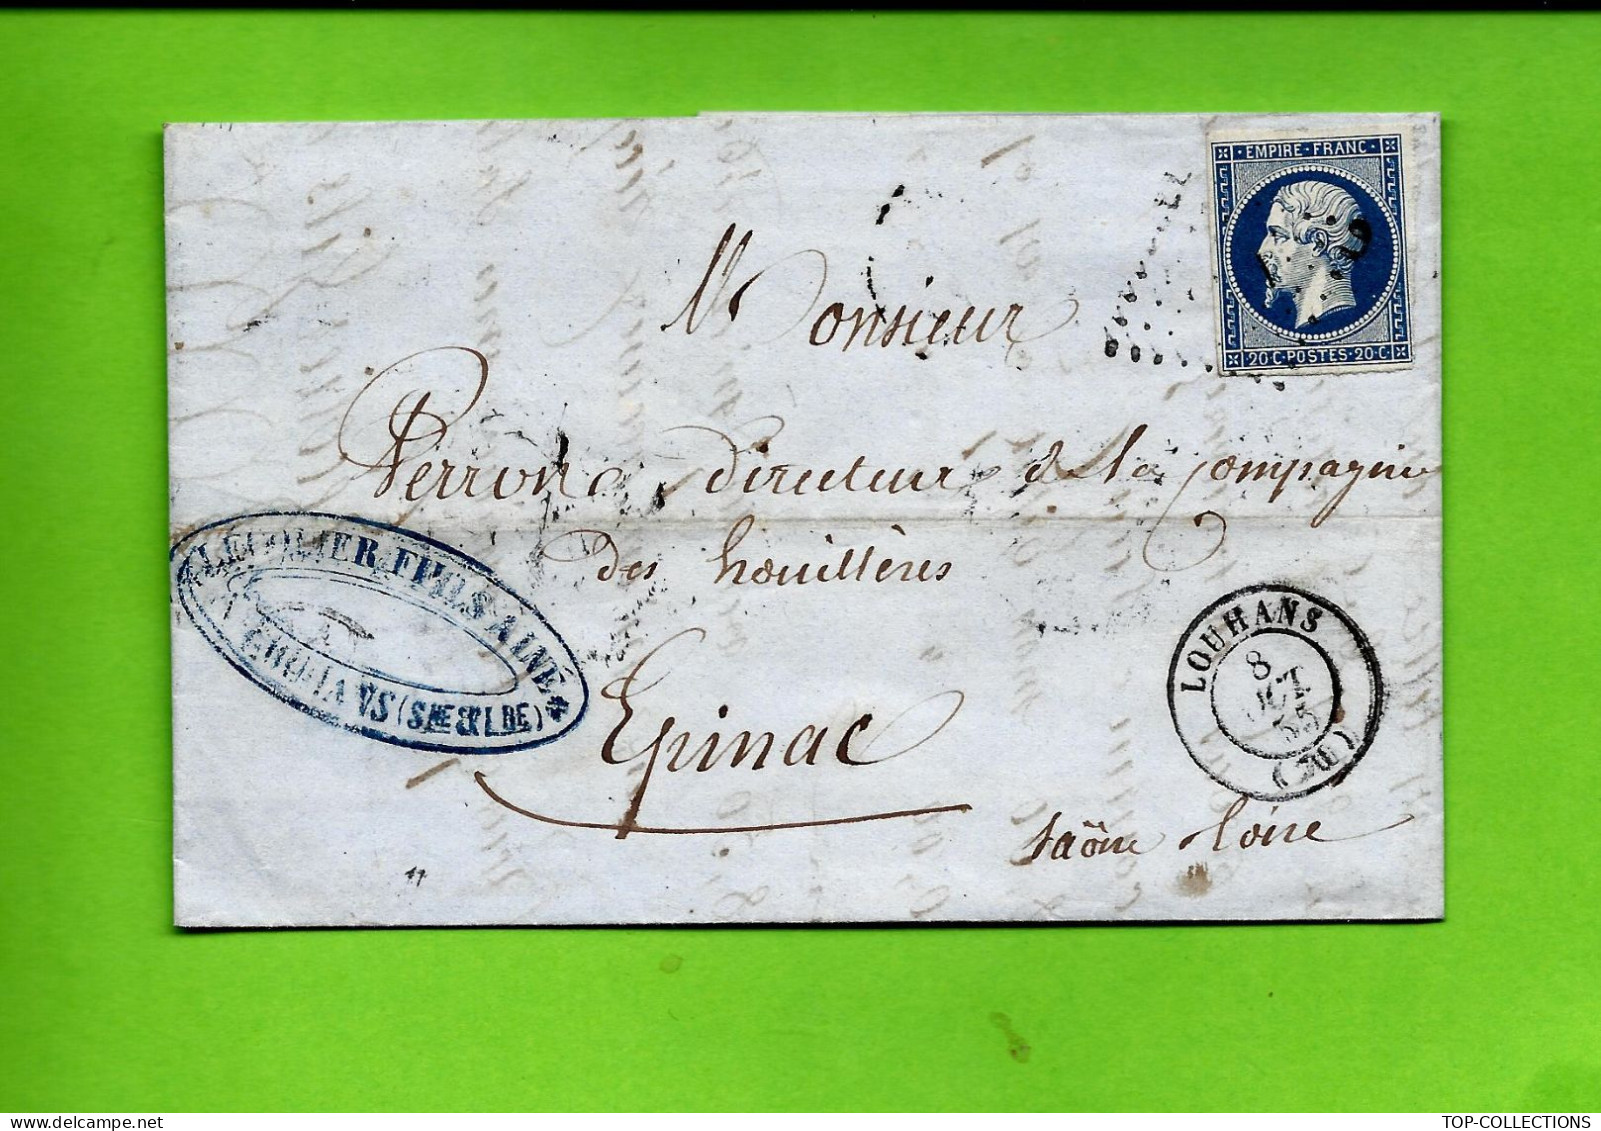 EMPIRE · FRANC
20·C·POSTES·20·C·
Monsieur
Perron, directeur de la Compagnie
des houillères
Epinac
Saône Loire
FILS AINÉ
(SNE & LRE)
LOUHANS
8
OCT
55
(70)
TOP-COLLECTIONS